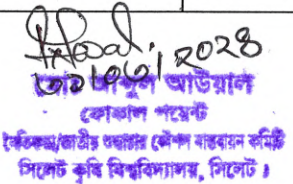 ৩০/০৬/২০২৪
আউয়াল
ফোকাল পয়েন্ট
নৈতিকতা/জাতীয় শুদ্ধাচার কৌশল বাস্তবায়ন কমিটি
সিলেট কৃষি বিশ্ববিদ্যালয়, সিলেট।